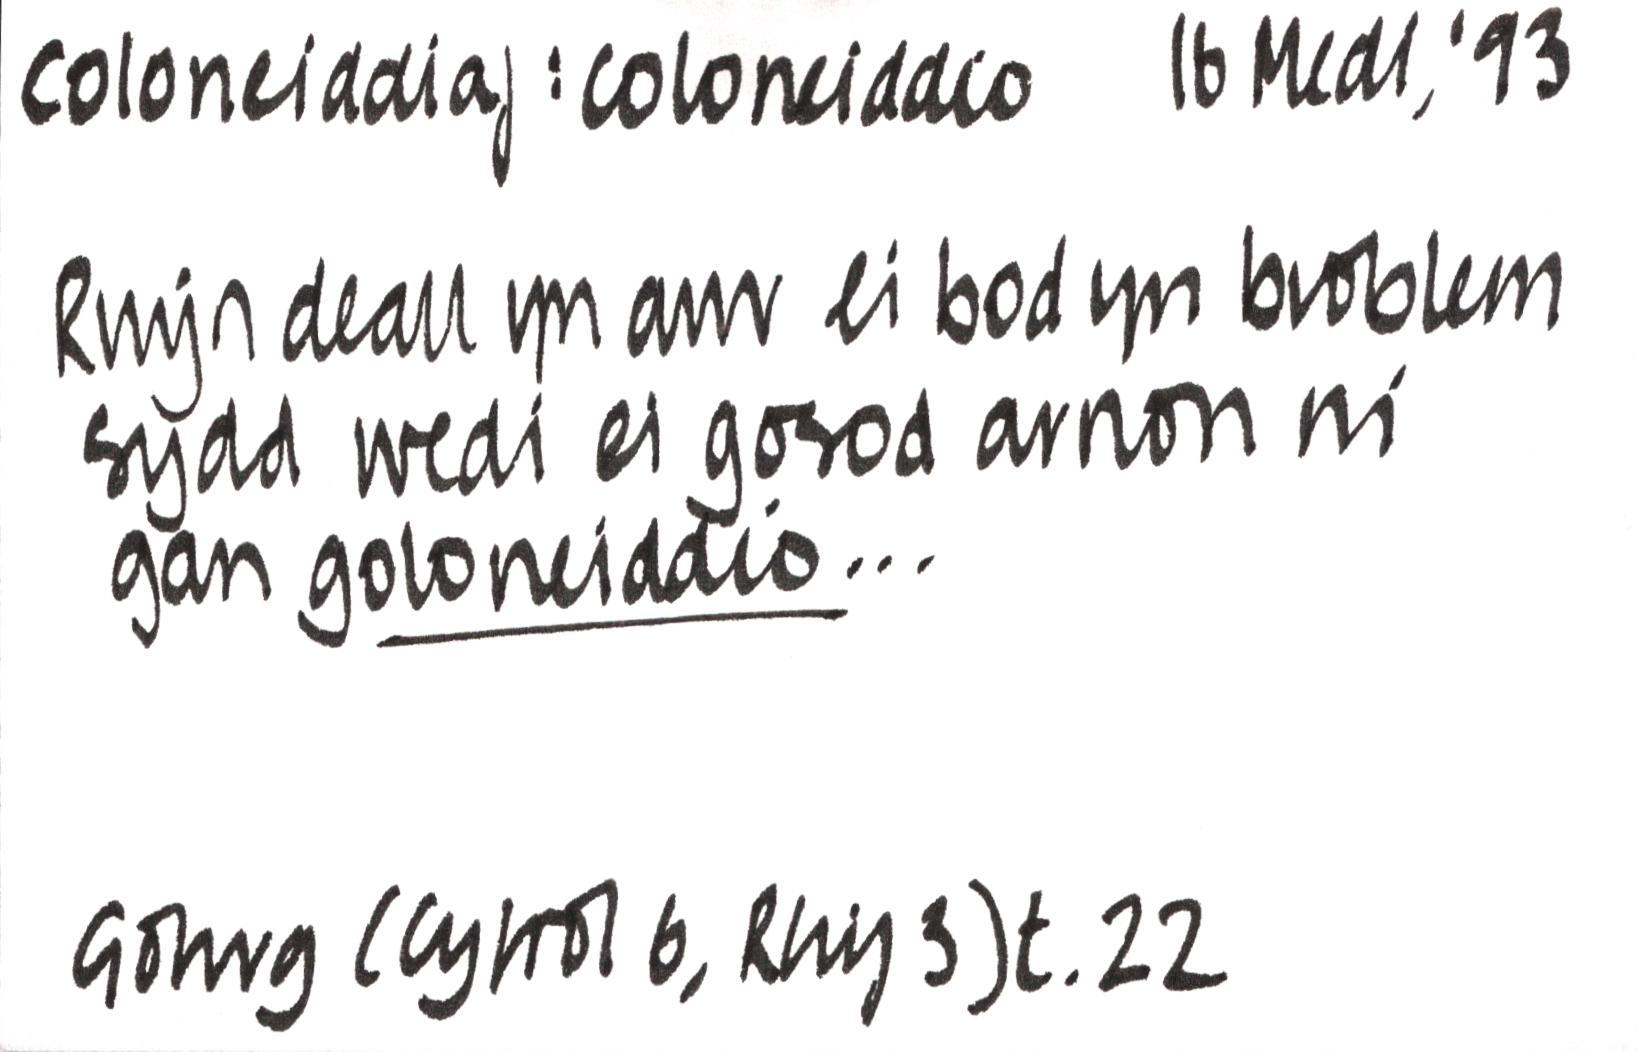 Coloneiddiaf : coloneiddio 16 Medi, '93
Rwy'n deall yn awr ei bod yn broblem
sydd wedi ei gosod arnon ni
gan goloneiddio...
Golwg (Cyfrol 6, Rhif 3) t. 22